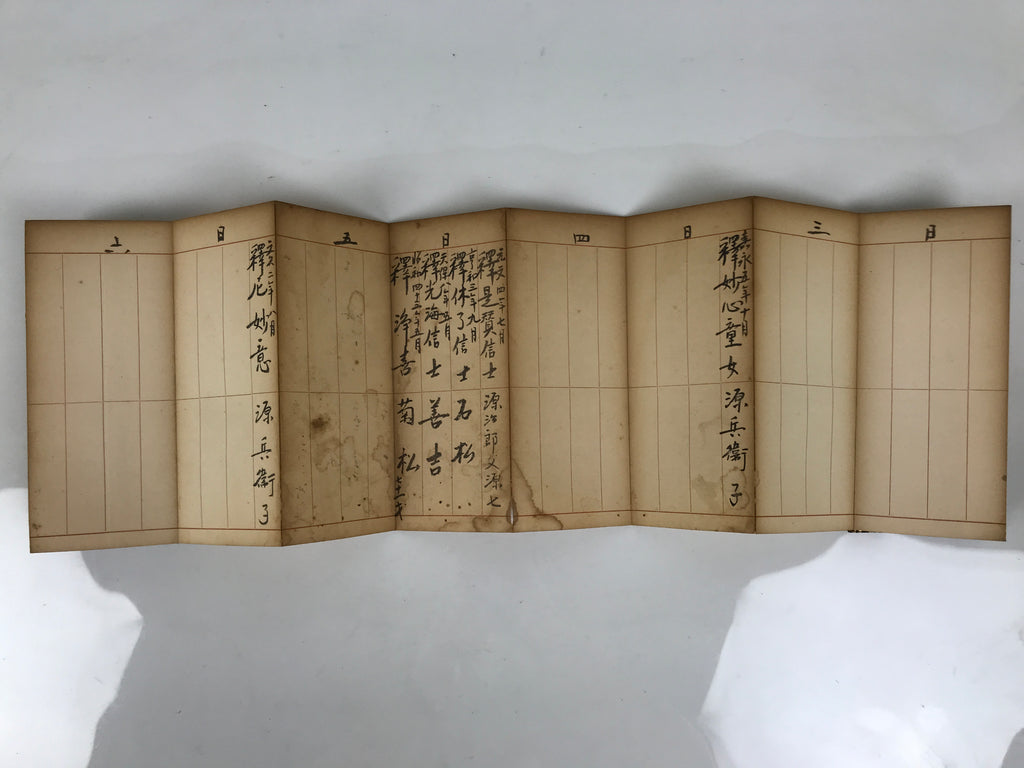 日
三
日
嘉永五年十月
釋妙心童女 源兵衞 子
四
日
元文四年七月
釋是賛信士 源治郎父源七
享和三年九月
釋休了信士 石松
天保 年五月
釋光海信士 善吉
昭和四十三年五月
釋浄喜 菊松
五
日
元文二年八月
釋尼妙意 源兵衞 子
六